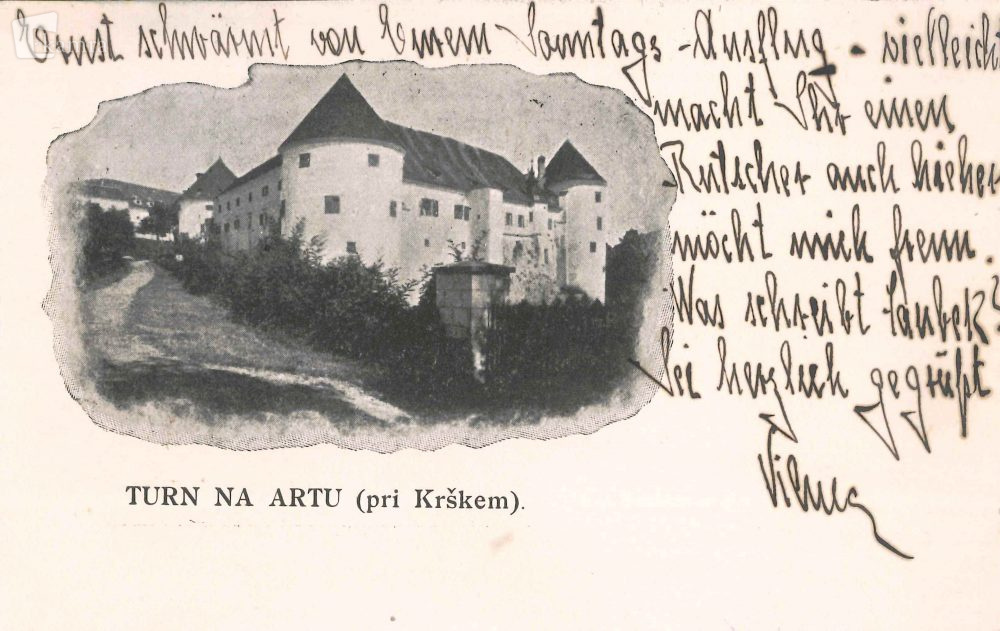 Ernst schwärmt von Eurem Sonntags-Ausflug - vielleicht
macht Ihr einen
Rutscher auch hieher
möcht mich freun.
Was schreibt
Sei herzlich gegrüßt
TURN NA ARTU (pri Krškem).